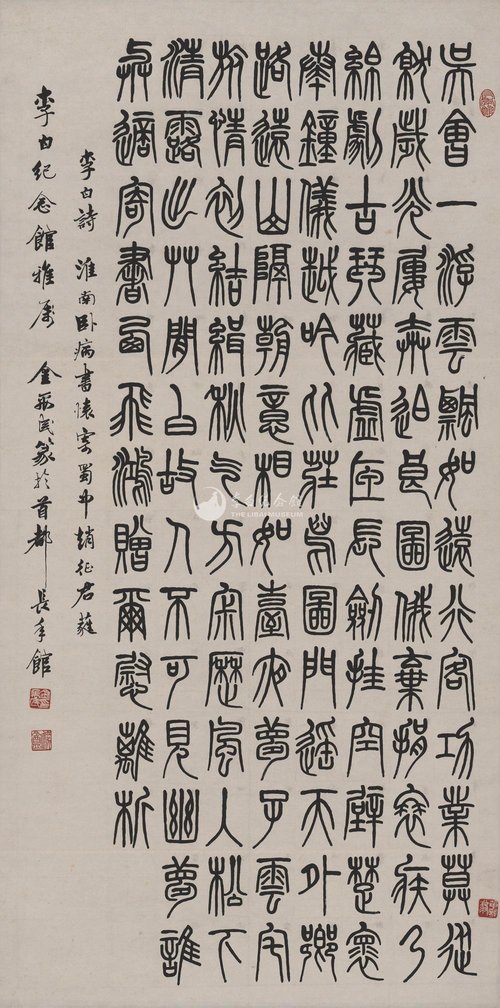 吳會一浮雲飄如遠行客功業莫從
就歲光屢奔迫良圖俄棄捐衰疾乃
綿劇古琴藏虛匣長劍挂空壁楚懷
奏鐘儀越吟比莊舄國門遙天外鄉
路遠山隔朝憶相如臺夜夢子雲宅
旅情初結緝秋氣方寂歷風入松下
清露出草間白故人不可見幽夢誰
與適寄書西飛鴻贈爾慰離析
李白詩 淮南卧病書懷寄蜀中趙征君蕤
李白纪念館雅属 金禹民篆於首都長年館
李白纪念馆
THE LIBAI MUSEUM